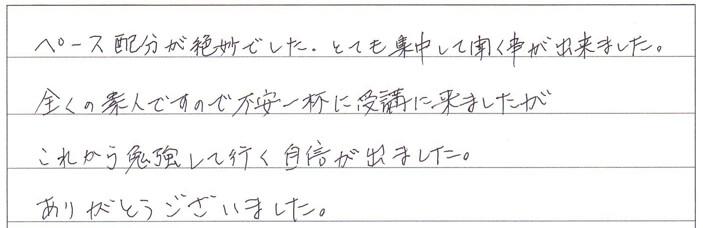 ペース配分が絶妙でした。とても集中して聞く事が出来ました。
全くの素人ですので不安一杯に受講に来ましたが
これから勉強して行く自信が出ました。
ありがとうございました。